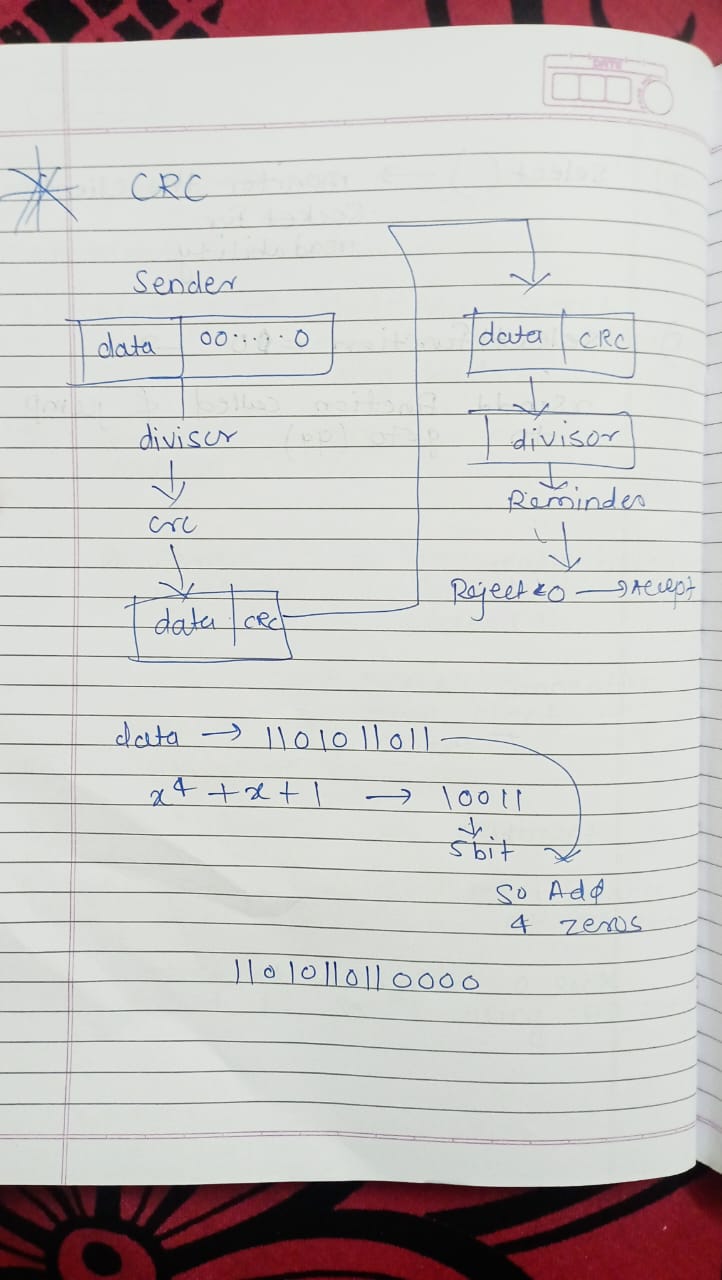 DATE
CRC
Sender
data 00.....0
divisor
crc
data CRC
data CRC
divisor
Reminder
Reject ≠0 → Accept
data → 1101011011
x⁴ + x + 1 → 10011
5bit
So Add
4 zeros
11010110110000